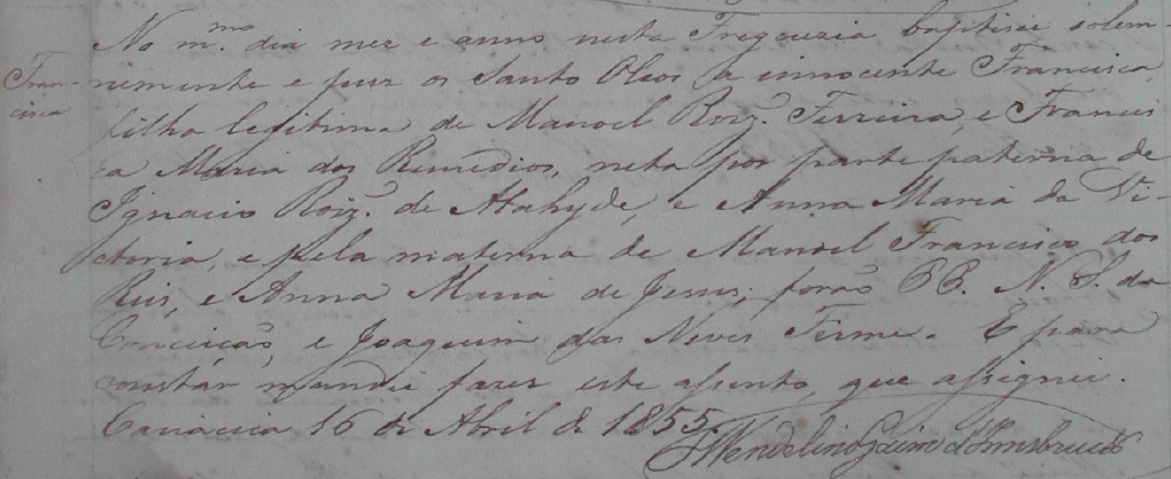 No mmo. dia mez e anno nesta Freguezia baptisei solem
Fran-
cisca
nemente e puz os Santo Oleos a innocente Francisca
filha legitima de Manoel Roiz. Ferreira, e Francis
ca Maria dos Remedios, neta por parte paterna de
Ignacio Roiz. de Atahyde, e Anna Maria da Vi-
ctoria, e pela materna de Manoel Francisco dos
Reis, e Anna Maria de Jesus; forão PP. N. S. da
Conceição, e Joaquim das Neves Ferme. E para
constár mandei fazer este assento, que assignei.
Cariacica 16 de Abril de 1855.
Wendelino d'Innsbruck